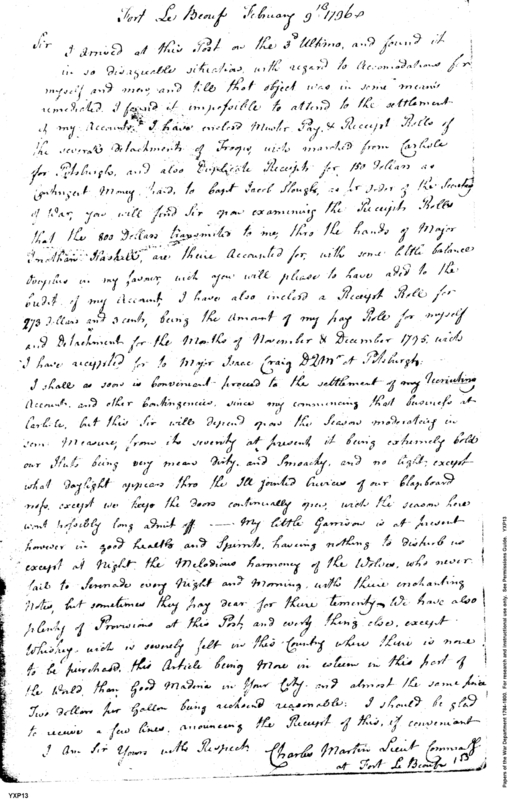 Fort Le Beouf February 9th 1796
Sir
I arrived at this Post on the 3d Ultimo, and found it
in so disagreable situation, with regard to Accomodations for
myself and men, and till that object was in some means
remediated I found it impossible to attend to the settlement
of my Accounts. I have enclosd Muster Pay & Receipt Rolls of
the several detachments of Troops, wich marched from Carlisle
for Pitsburgh, and also Duplicate Receipts for 150 dollars as
Contingent Money paid, to Capt Jacob Slough, as per order of the Secretary
of War, you will find Sir upon examineing the Receipts Rolls
that the 800 Dollars transmited to me, thro the hands of Major
Jonathan Haskell, are their Accounted for, with some little balance
in my favour, wich you will please to have aded to the
Credit of my Account, I have also inclosd a Receipt Roll for
273 dollars and 3 cents, being the Amount of my pay Roll for myself
and Detachment for the Months of November & December 1795 wich
I have receipted for to Major Isaac Craig D.Q.Mr at Pitsburgh,
I shall as soon is Conveniant proceed to the settlement of my Recruiting
Account, and other Contingencies, since my commencing that business at
Carlisle, but this Sir will depend upon the Season moderateing in
some Measure, from its severity at present it being extremely Cold
our Huts being very mean Dirty, and Smoachy, and no light, except
what daylight appears thro the Ill jointed Crevices of our Clapboard
roofs, except we keep the doors continually open, wich the season here
wont possibly long admit off — My little Garrison is at present
however in good health and Spirits, haveing nothing to disturb us
except at Night the Melodious harmony of the Wolves, who never
fail to Serinade every Night and Morning, with their enchanting
Notes, but sometimes they pay dear for there temerity. We have also
plenty of Provisions at this Post, and every thing else, except
Whiskey, wich is severly felt in this Country where their is none
to be purchasd, this Article being More in esteem in this part of
the World, than Good Madeira in Your City, and almost the same price
Two dollars per Gallon being reckond reasonable: I should be glad
to receive a few lines, anouncing the Receipt of this, if conveniant
I Am Sir Yours with Respect
Charles Martin Lieut Command
at Fort Le Beouf
YXP13
Papers of the War Department 1784-1800. For research and instructional use only. See Permissions Guide. YXP13